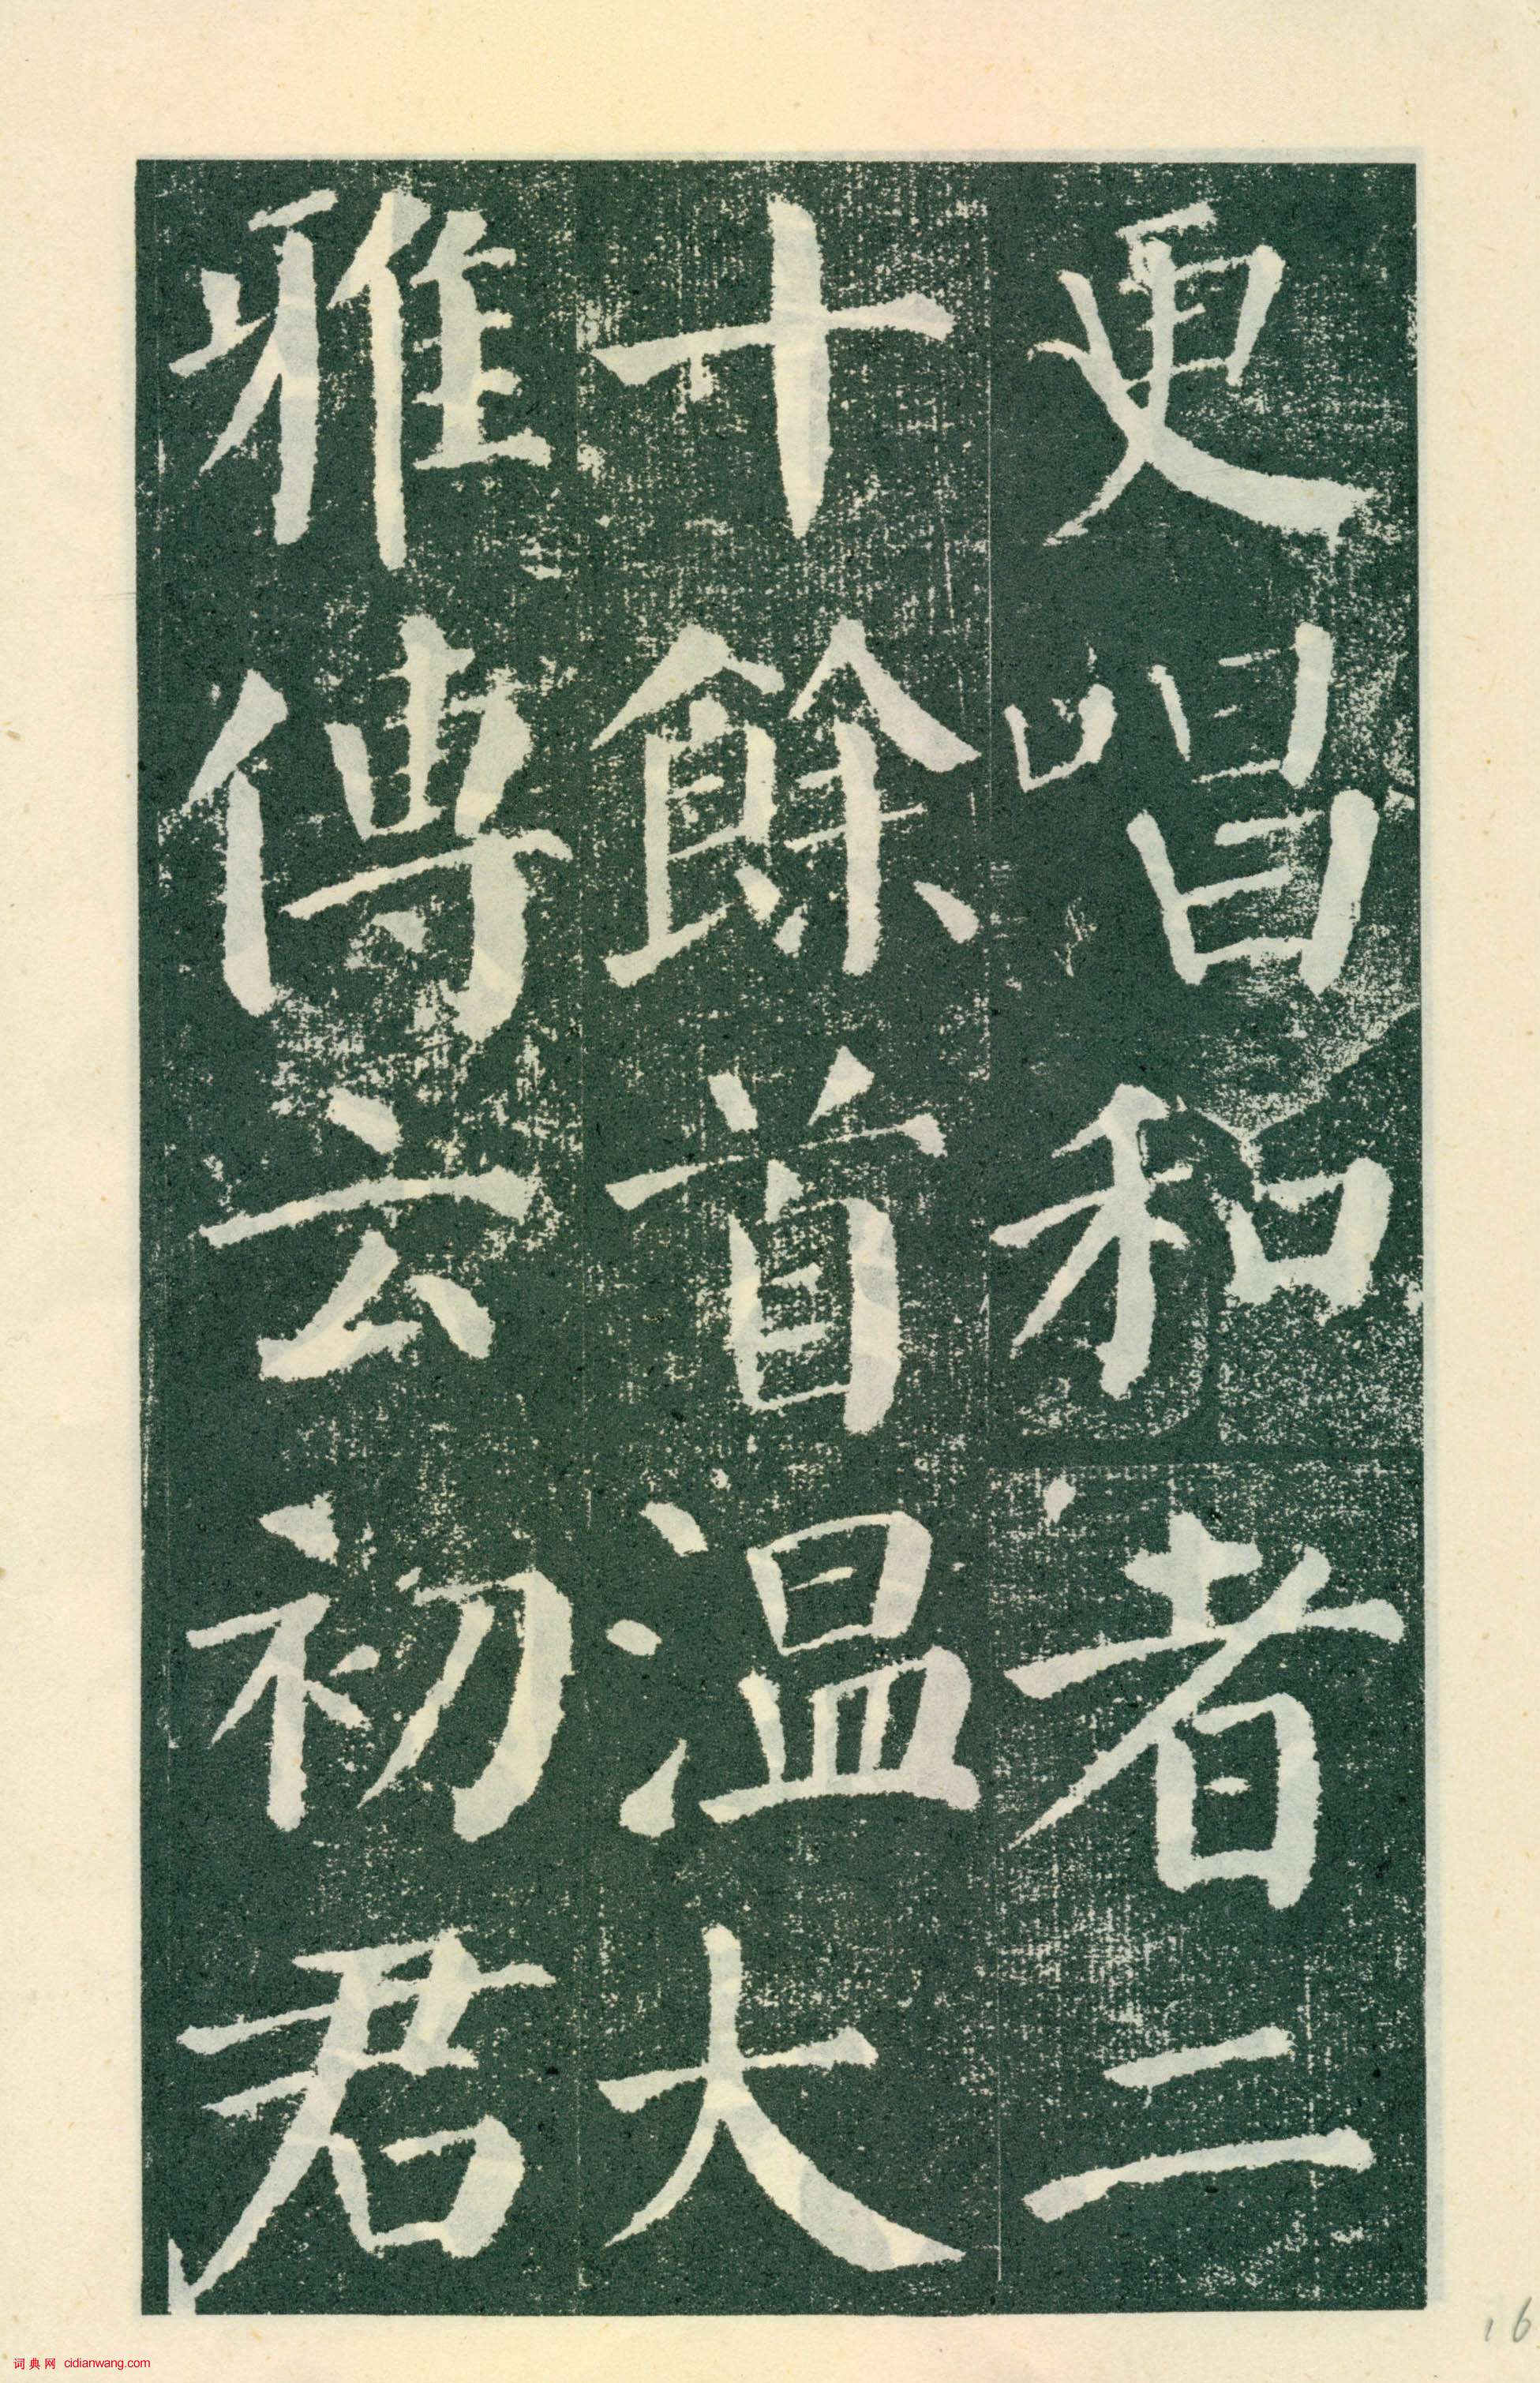 更唱和者二
十餘首温大
雅傳云初君
16
词典网 cidianwang.com